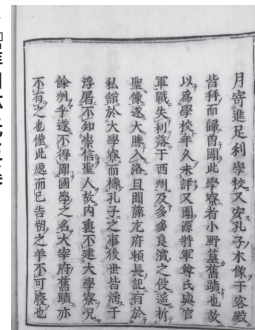 月寄進足利學校又安孔子木像于客殿
皆拜而歸曽聞此學寮者小野篁舊蹟也故
以爲學校年久未詳又聞源將軍尊氏與官
軍戰失利落于西州及多多良濱之役遥祈
聖像遂大勝入洛且聞藤尤府頼長記有於
私館於大學寮而據孔子之事後世皆溺于
浮屠不知崇信聖人故内裏不建大學寮況
餘州乎遂不得聞國學之名大宰府舊蹟亦
不有之也僅此處而已告朔之羊不可廢也